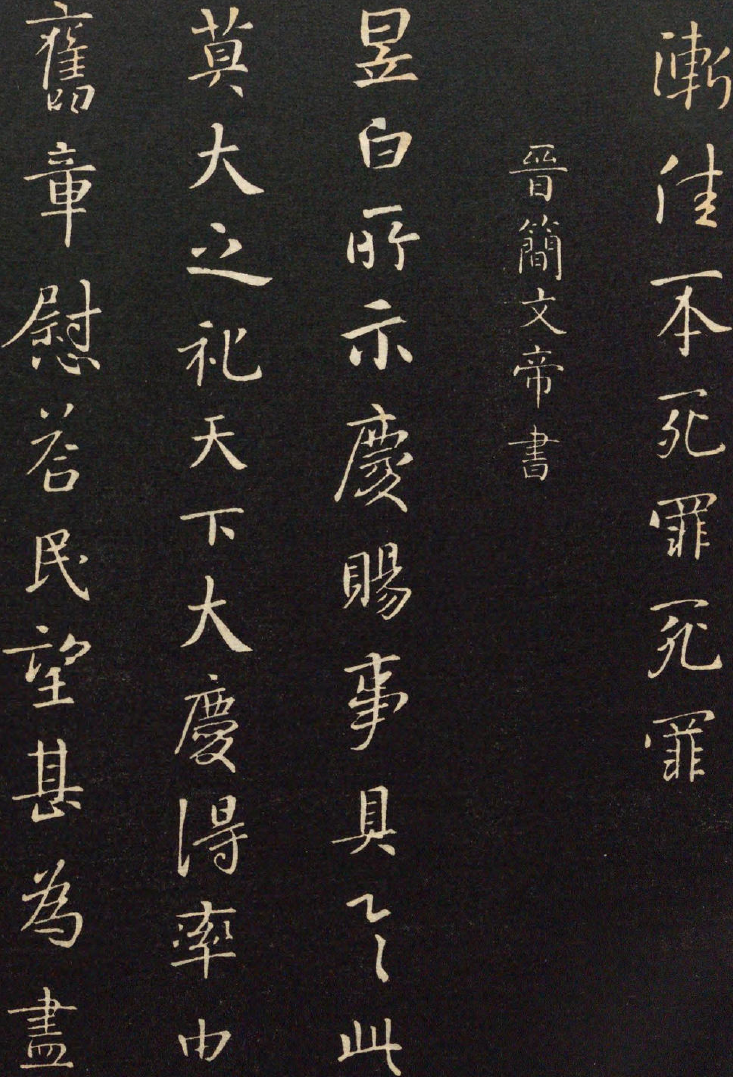 漸佳一本死罪死罪
晉簡文帝書
昱白所示慶賜事具之此
莫大之祀天下大慶得率由
舊章慰荅民望甚為盡